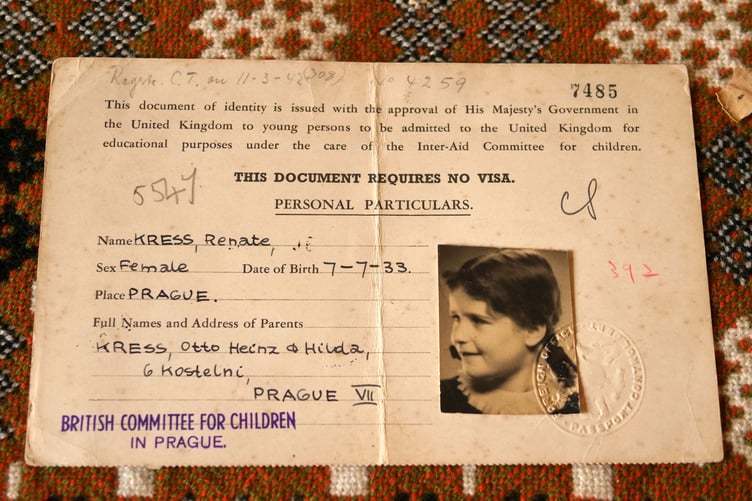 C.T. on 11-3-42 No 4259
7485
This document of identity is issued with the approval of His Majesty's Government in
the United Kingdom to young persons to be admitted to the United Kingdom for
educational purposes under the care of the Inter-Aid Committee for children.
THIS DOCUMENT REQUIRES NO VISA.
PERSONAL PARTICULARS.
Name KRESS, Renate,
Sex Female Date of Birth 7-7-33.
392
Place PRAGUE.
Full Names and Address of Parents
KRESS, Otto Heinz & Hilda,
6 Kostelni,
PRAGUE VII
BRITISH COMMITTEE FOR CHILDREN
IN PRAGUE.
PASSPORT